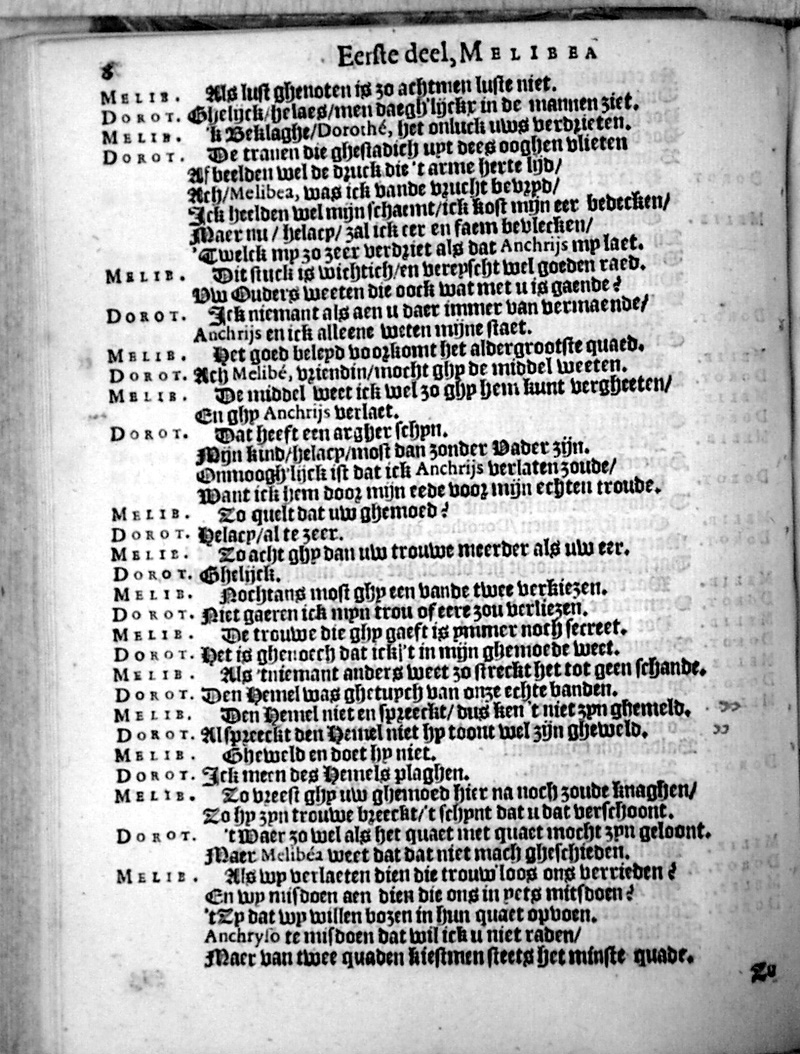 8
Eerste deel, MELIBEA
MELIB. Als lust ghenoten is zo achtmen luste niet.
DOROT. Ghelijck/helaes/men daegh'lijckx in de mannen ziet.
MELIB. 'k Beklaghe/Dorothé, het onluck uws verdrieten.
DOROT. De tranen die ghestadich uyt dees ooghen vlieten
Af beelden wel de druck die 't arme herte lijd/
Ach/Melibea, was ick vande vrucht bevryd/
Ick heelden wel mijn schaemt/ick kost mijn eer bedecken/
Maer nu/helacy/zal ick eer en faem bevlecken/
'Twelck my zo zeer verdriet als dat Anchrijs my laet.
MELIB. Dit stuck is wichtich/en vereyscht wel goeden raed.
Uw Ouders weeten die oock wat met u is gaende?
DOROT. Ick niemant als aen u daer immer van vermaende/
Anchrijs en ick alleene weten mijne staet.
MELIB. Het goed beleyd voorkomt het aldergrootste quaed.
DOROT. Ach Melibé, vriendin/mocht ghy de middel weeten.
MELIB. De middel weet ick wel zo ghy hem kunt vergheeten/
En ghy Anchrijs verlaet.
DOROT. Dat heeft een argher schyn.
Mijn kind/helacy/most dan zonder Vader zijn.
Onmoogh'lijck ist dat ick Anchrijs verlaten zoude/
Want ick hem door mijn eede voor mijn echten troude.
MELIB. Zo quelt dat uw ghemoed?
DOROT. Helacy/al te zeer.
MELIB. Zo acht ghy dan uw trouwe meerder als uw eer.
DOROT. Ghelijck.
MELIB. Nochtans most ghy een vande twee verkiezen.
DOROT. Niet gaeren ick myn trou of eere zou verliezen.
MELIB. De trouwe die ghy gaeft is ymmer noch secreet.
DOROT. Het is ghenoech dat ick|'t in mijn ghemoede weet.
MELIB. Als 'tniemant anders weet zo streckt het tot geen schande.
DOROT. Den Hemel was ghetuych van onze echte banden.
MELIB. Den Hemel niet en spreeckt/dus ken 't niet zyn ghemeld. ,,
DOROT. Al spreeckt den Hemel niet hy toont wel zijn gheweld. ,,
MELIB. Gheweld en doet hy niet.
DOROT. Ick meen des Hemels plaghen.
MELIB. Zo vreest ghy uw ghemoed hier na noch zoude knaghen/
Zo hy zyn trouwe breeckt/'t schynt dat u dat verschoont.
DOROT. 't Waer zo wel als het quaet met quaet mocht zyn geloont.
Maer Melibéa weet dat dat niet mach gheschieden.
MELIB. Als wy verlaeten dien die trouw'loos ons verrieden?
En wy misdoen aen dien die ons in yets mitsdoen?
'tZy dat wy willen bozen in hun quaet opvoen.
Anchryso te misdoen dat wil ick u niet raden/
Maer van twee quaden kiestmen steets het minste quade.
Zu